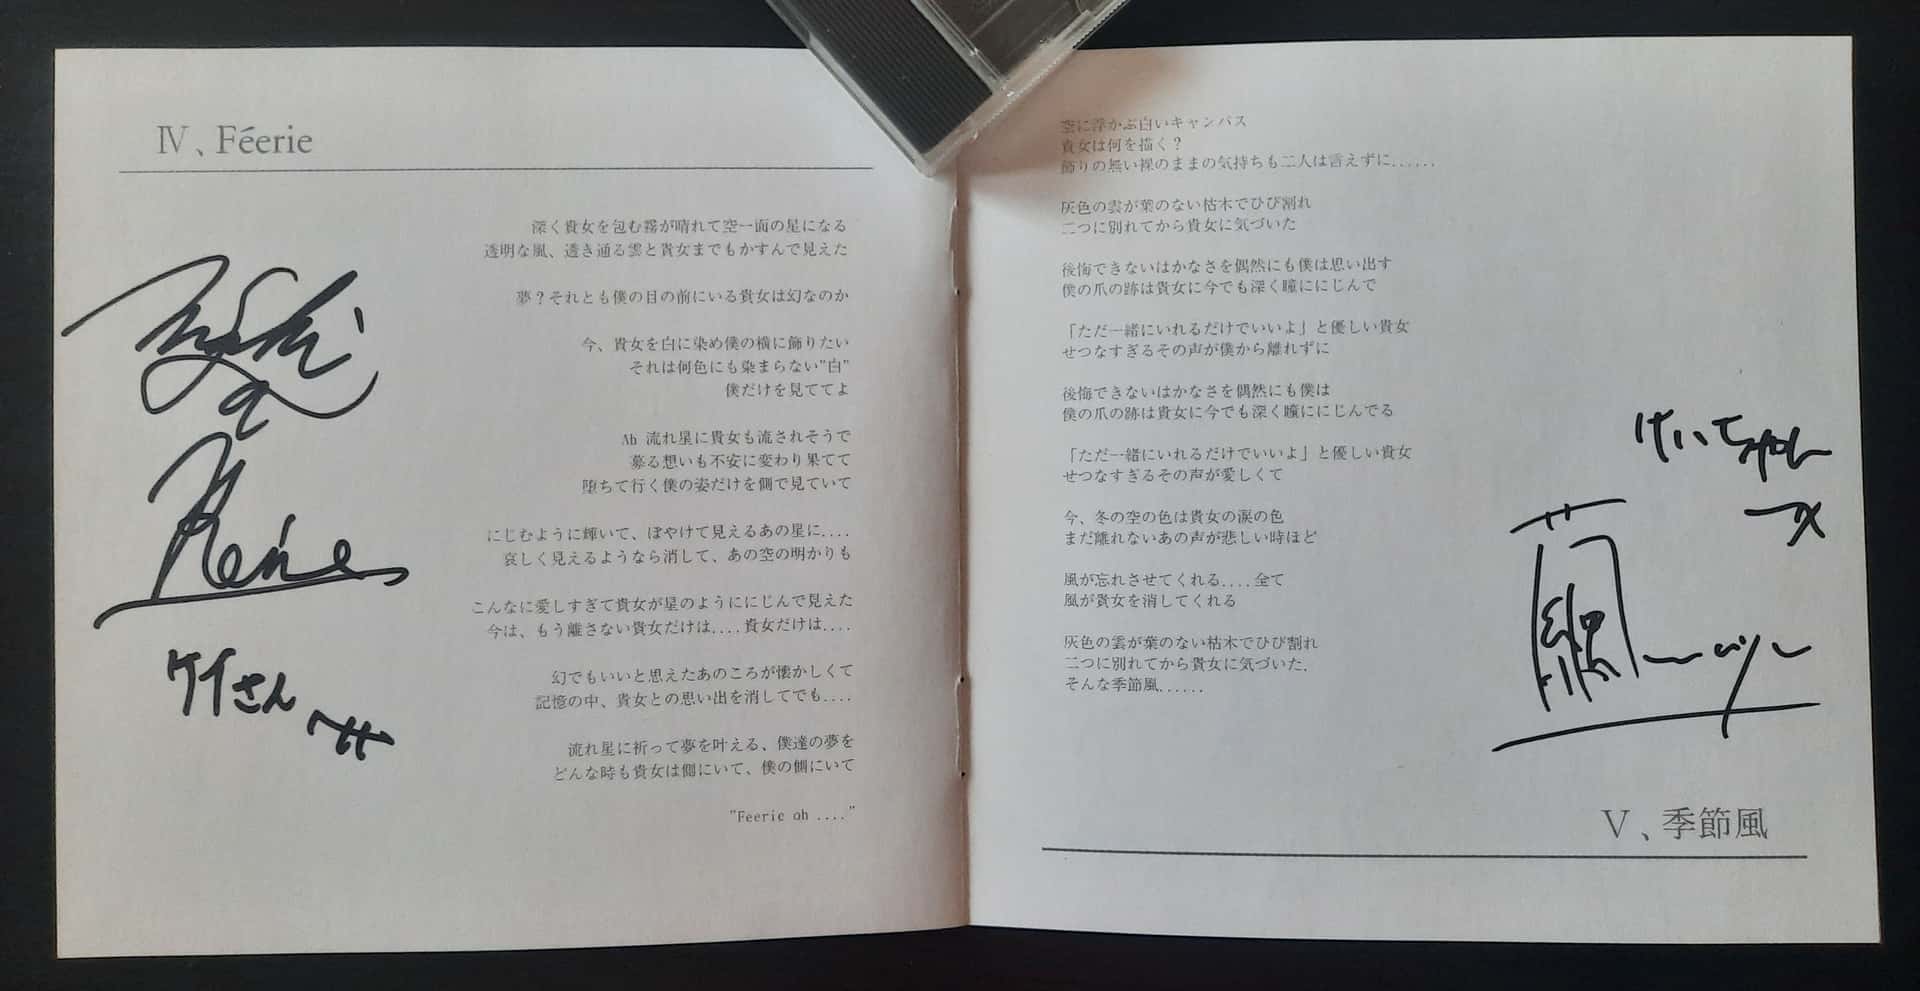 Ⅳ、Féerie
深く貴女を包む霧が晴れて空一面の星になる
透明な風、透き通る雲と貴女までもかすんで見えた
夢？それとも僕の目の前にいる貴女は幻なのか
今、貴女を白に染め僕の横に飾りたい
それは何色にも染まらない"白"
僕だけを見ててよ
Ah 流れ星に貴女も流されそうで
募る想いも不安に変わり果てて
堕ちて行く僕の姿だけを側で見ていて
にじむように輝いて、ぼやけて見えるあの星に....
哀しく見えるようなら消して、あの空の明かりも
こんなに愛しすぎて貴女が星のようににじんで見えた
今は、もう離さない貴女だけは....貴女だけは....
幻でもいいと思えたあのころが懐かしくて
記憶の中、貴女との思い出を消してでも....
流れ星に祈って夢を叶える、僕達の夢を
どんな時も貴女は側にいて、僕の側にいて
"Feerie oh ...."
ケイさん
へ
空に浮かぶ白いキャンバス
貴女は何を描く？
飾りの無い裸のままの気持ちも二人は言えずに......
灰色の雲が葉のない枯木でひび割れ
二つに別れてから貴女に気づいた
後悔できないはかなさを偶然にも僕は思い出す
僕の爪の跡は貴女に今でも深く瞳ににじんで
「ただ一緒にいれるだけでいいよ」と優しい貴女
せつなすぎるその声が僕から離れずに
後悔できないはかなさを偶然にも僕は
僕の爪の跡は貴女に今でも深く瞳ににじんでる
「ただ一緒にいれるだけでいいよ」と優しい貴女
せつなすぎるその声が愛しくて
今、冬の空の色は貴女の涙の色
まだ離れないあの声が悲しい時ほど
風が忘れさせてくれる....全て
風が貴女を消してくれる
灰色の雲が葉のない枯木でひび割れ
二つに別れてから貴女に気づいた.
そんな季節風......
けいちゃん
へ
Ⅴ、季節風